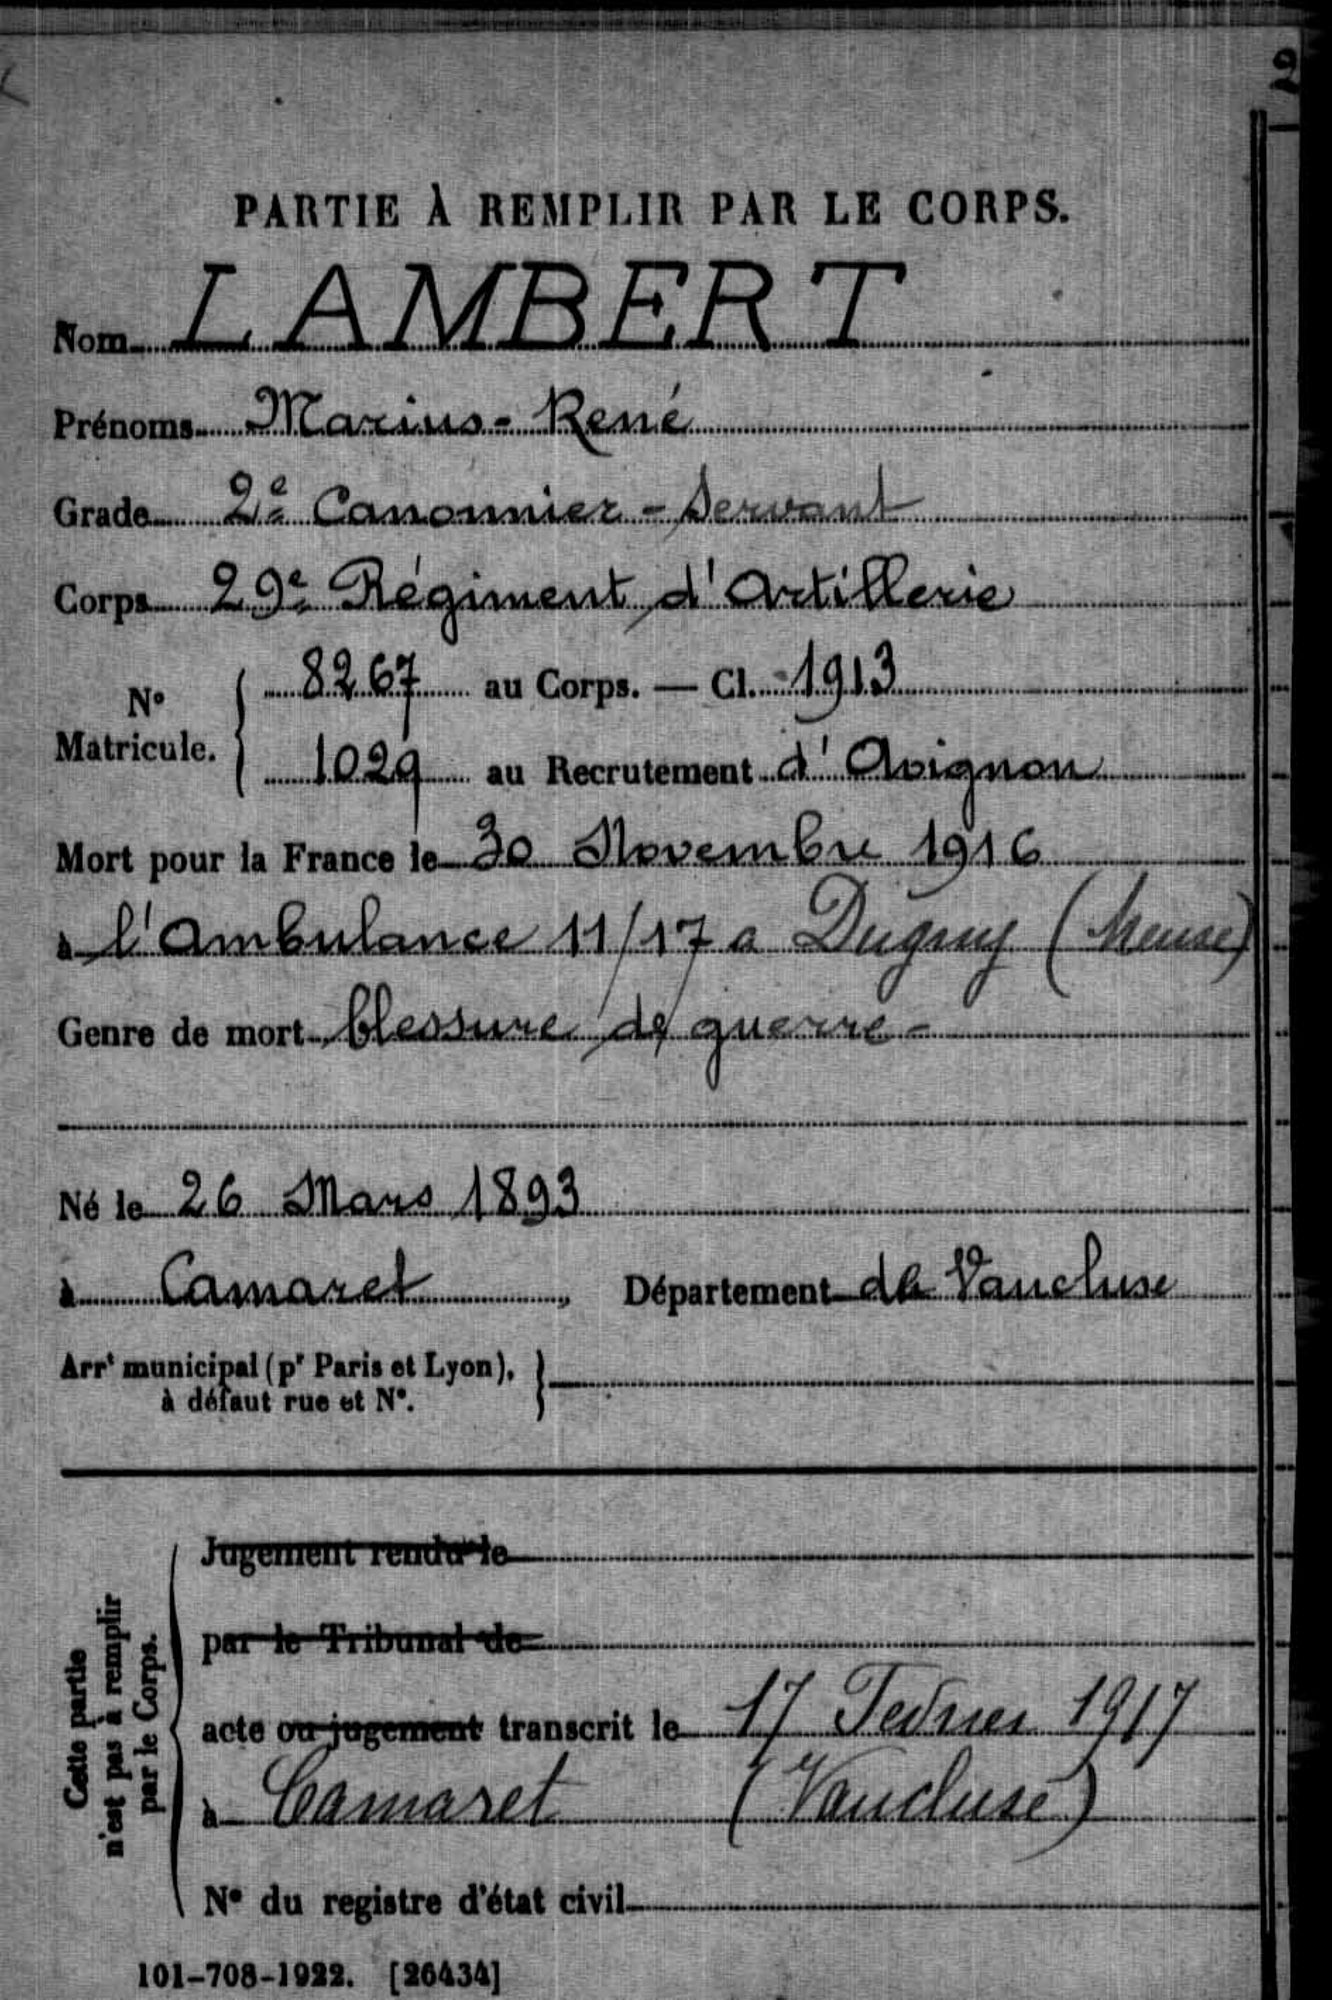 PARTIE À REMPLIR PAR LE CORPS.
Nom LAMBERT
Prénoms Marius-René
Grade 2e Canonnier-Servant
Corps 29e Régiment d'Artillerie
No Matricule. { 8267 au Corps. — Cl. 1913
1029 au Recrutement d'Avignon
Mort pour la France le 30 Novembre 1916
à l'Ambulance 11/17 a Dugny (Meuse)
Genre de mort blessure de guerre -
Né le 26 Mars 1893
à Camaret, Département de Vaucluse
Arrt municipal (pr Paris et Lyon),
à défaut rue et No.
Cette partie
n'est pas à remplir
par le Corps.
Jugement rendu le
par le Tribunal de
acte ou jugement transcrit le 17 Fevrier 1917
à Camaret (Vaucluse)
No du registre d'état civil
101-708-1922. [26434]